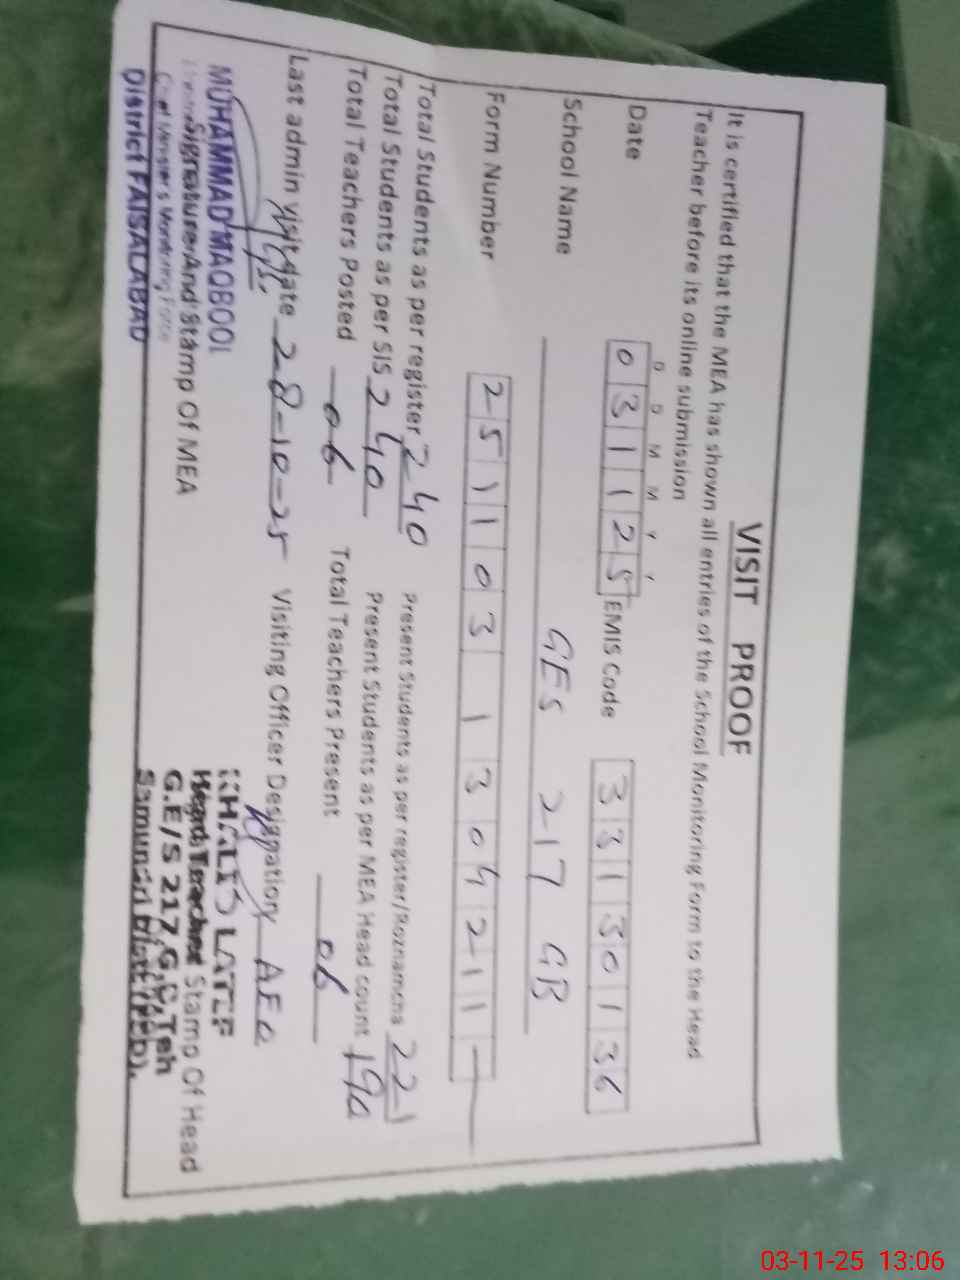 VISIT PROOF
It is certified that the MEA has shown all entries of the School Monitoring Form to the Head
Teacher before its online submission
D D M M Y Y
Date 03 11 25 EMIS Code 33130136
School Name GES 217 GB
Form Number 251103 1 304211
Total Students as per register 240 Present Students as per register/Roznamcha 221
Total Students as per SIS 240 Present Students as per MEA Head count 190
Total Teachers Posted 06 Total Teachers Present 06
Last admin visit date 28-10-25 Visiting Officer Designation AEO
MUHAMMAD MAQBOOL
Signature And Stamp Of MEA
District FAISALABAD
Head Teacher Stamp Of Head
G.E/S 217 G.B, Teh
03-11-25 13:06